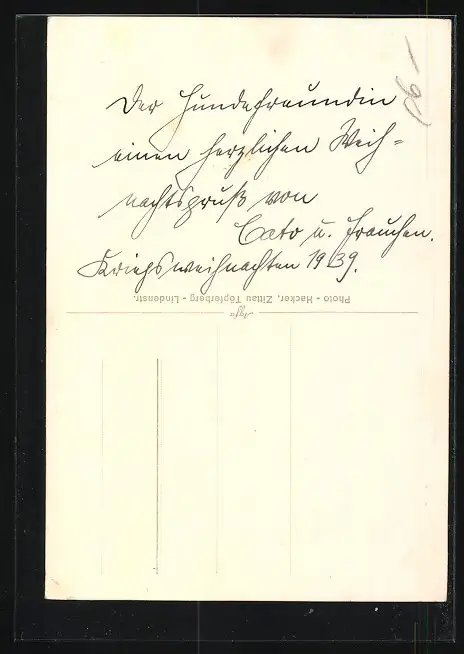 Der Hundefreundin
einen herzlichen Weih-
nachtsgruß von
Cato u. Frauchen.
Kriegsweihnachten 1939.
Photo - Hacker, Zittau Töpferberg - Lindenstr.
Agfa